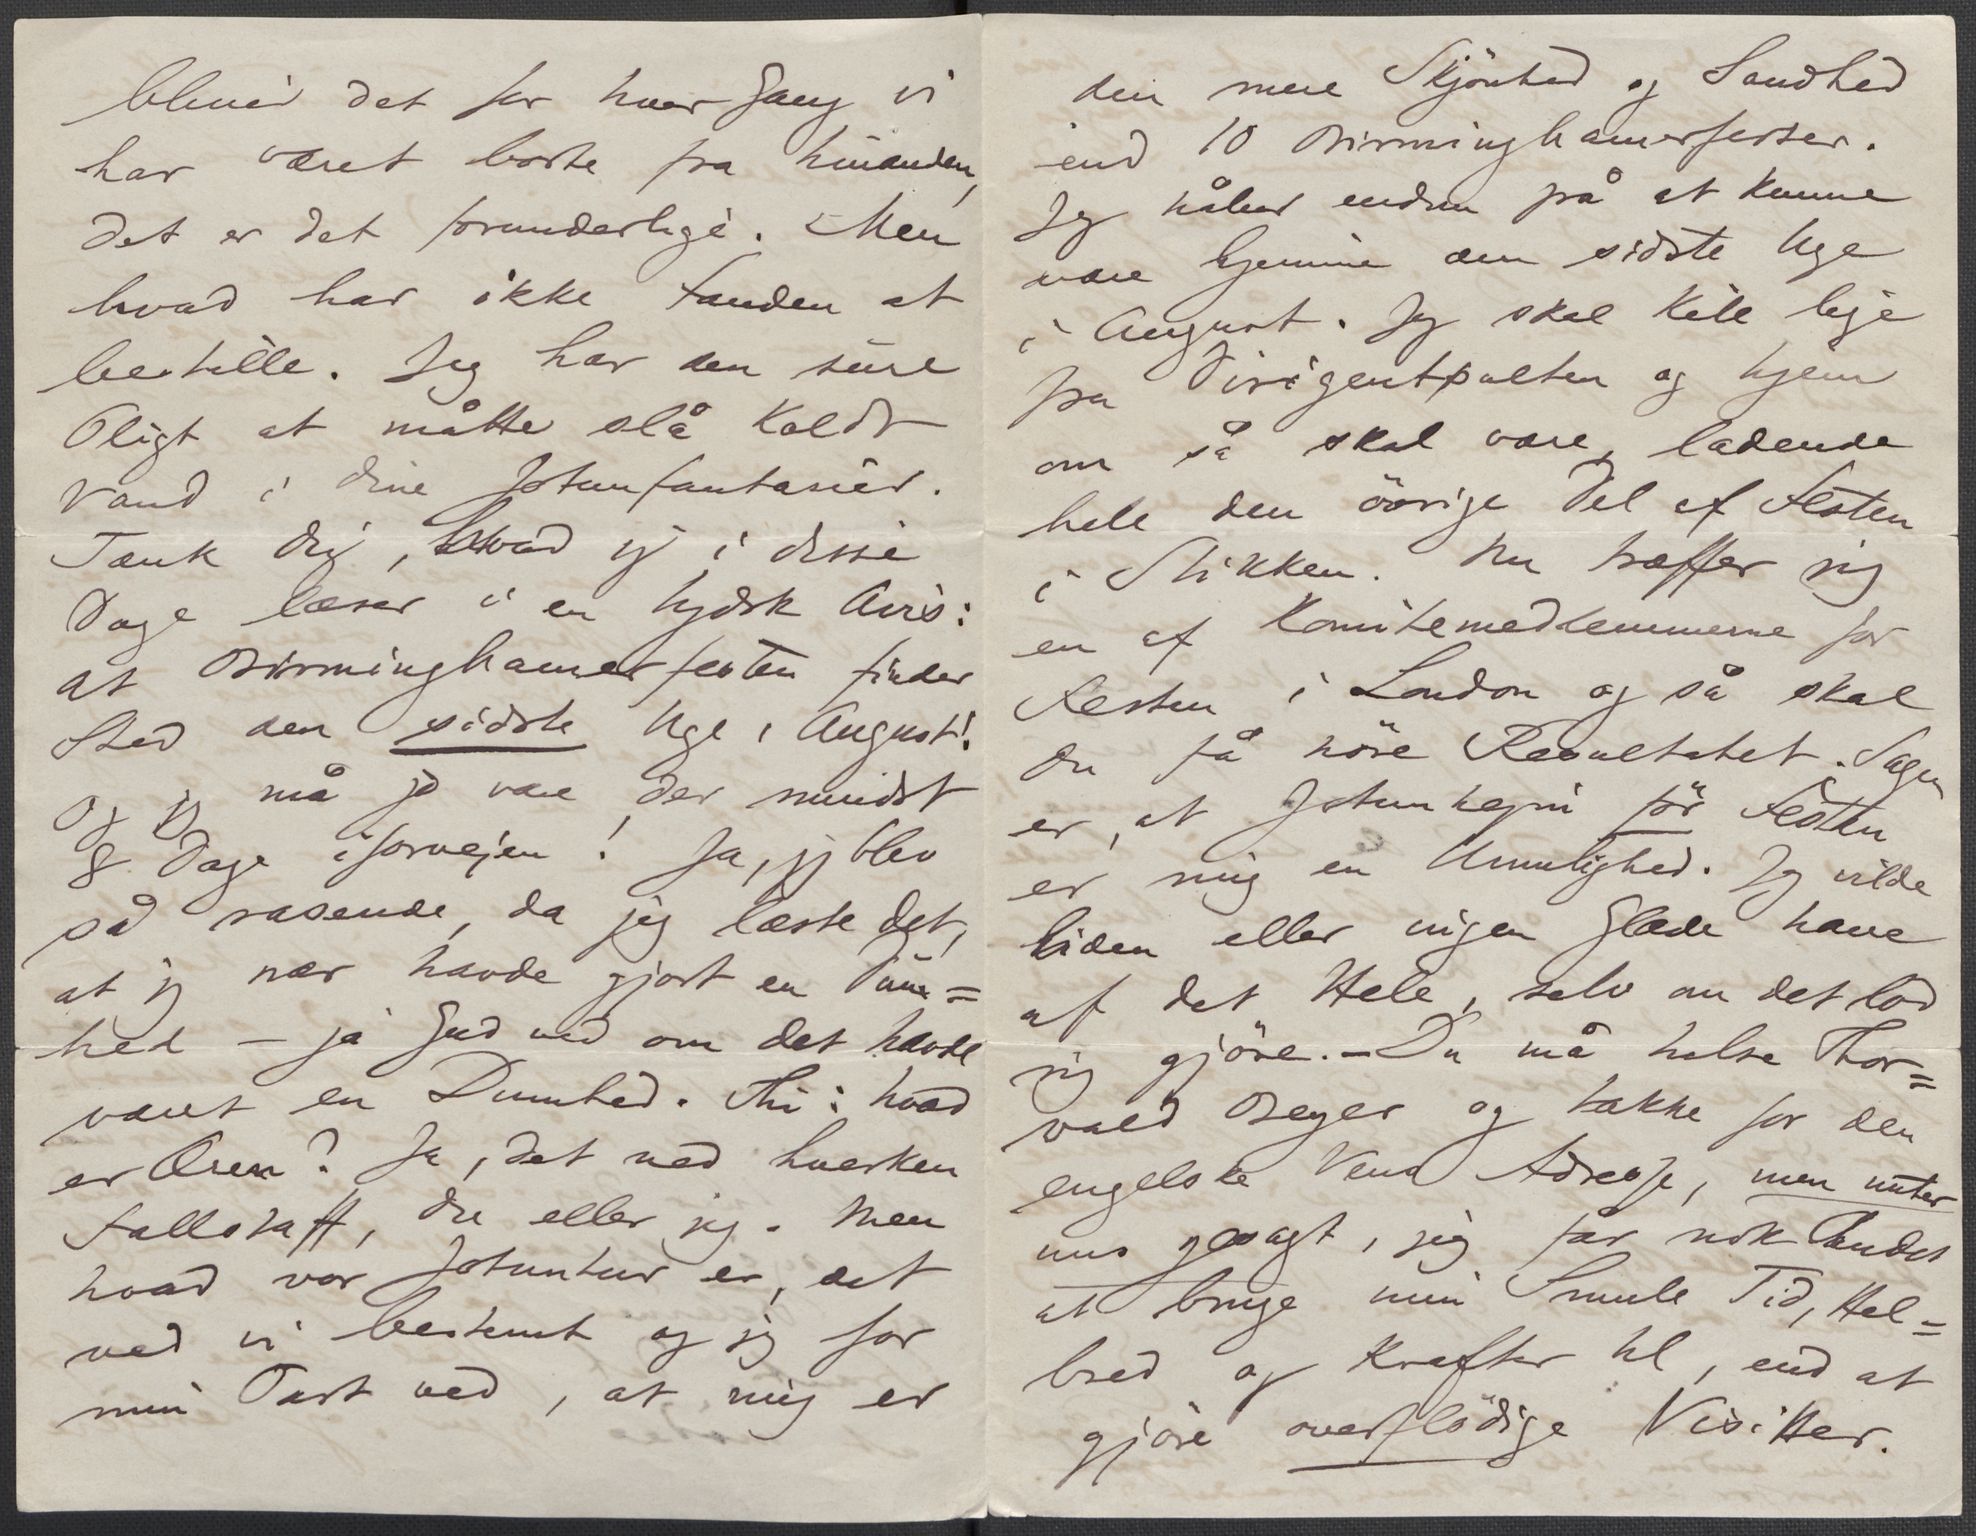 bliver det for hver Gang vi
har været borte fra hinanden,
det er det forunderlige. – Men
hvad har ikke Fanden at
bestille. Jeg har den sure
Pligt at måtte slå koldt
Vand i dine Jotunfantasier.
Tænk dig, hvad jeg i disse
Dage læser i en tydsk Avis:
at Birminghamerfesten finder
Sted den sidste Uge i August!
Og jeg må jo være der mindst
8 Dage iforvejen! Ja, jeg blev
så rasende, da jeg læste det,
at jeg nær havde gjort en Dum=
hed – ja Gud ved om det havde
været en Dumhed. Thi: hvad
er Æren? Ja, det ved hverken
Fallstaff, du eller jeg. Men
hvad vor Jotuntur er, det
ved vi bestemt og jeg for
min Part ved, at mig er
den mere Skjönhed og Sandhed
end 10 Birminghamerfester.
Jeg håber endnu på at kunne
være hjemme den sidste Uge
i August. Jeg skal kile lige
fra Dirigentpulten og hjem
om så skal være, ladende
hele den övrige Del af Festen
i Stikken. Nu træffer jeg
en af Komitemedlemmerne for
Festen i London og så skal
du få höre Resultatet. Sagen
er, at Jotunhejm för Festen
er mig en Umulighed. Jeg vilde
liden eller ingen Glæde have
af det Hele, selv om det lod
sig gjöre. – Du må hilse Thor=
vald Beyer og takke for den
engelske Vens Adresse, men unter
uns gesagt, jeg får nok Andet
at bruge min Smule Tid, Hel=
bred og Kræfter til, end at
gjöre overflödige Visitter.